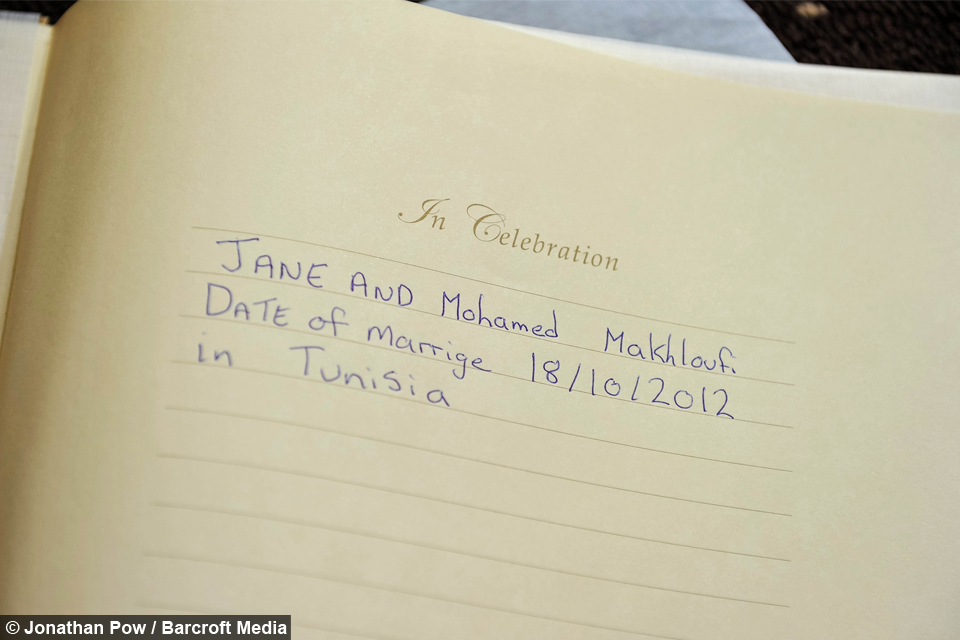 In Celebration
JANE AND Mohamed Makhloufi
DATE of marrige 18/10/2012
in Tunisia
© Jonathan Pow / Barcroft Media